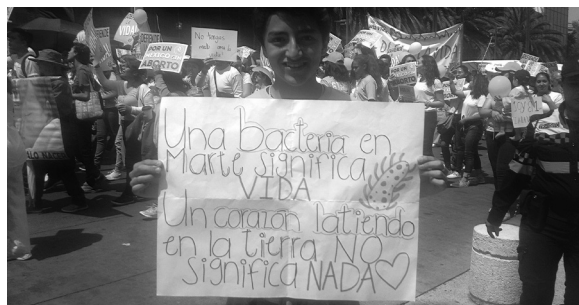 VIDA
POR UN
MEXICO SIN
ABORTO
No tengas
miedo
Una bacteria en
Marte significa
VIDA
Un corazón latiendo
en la tierra NO
significa NADA